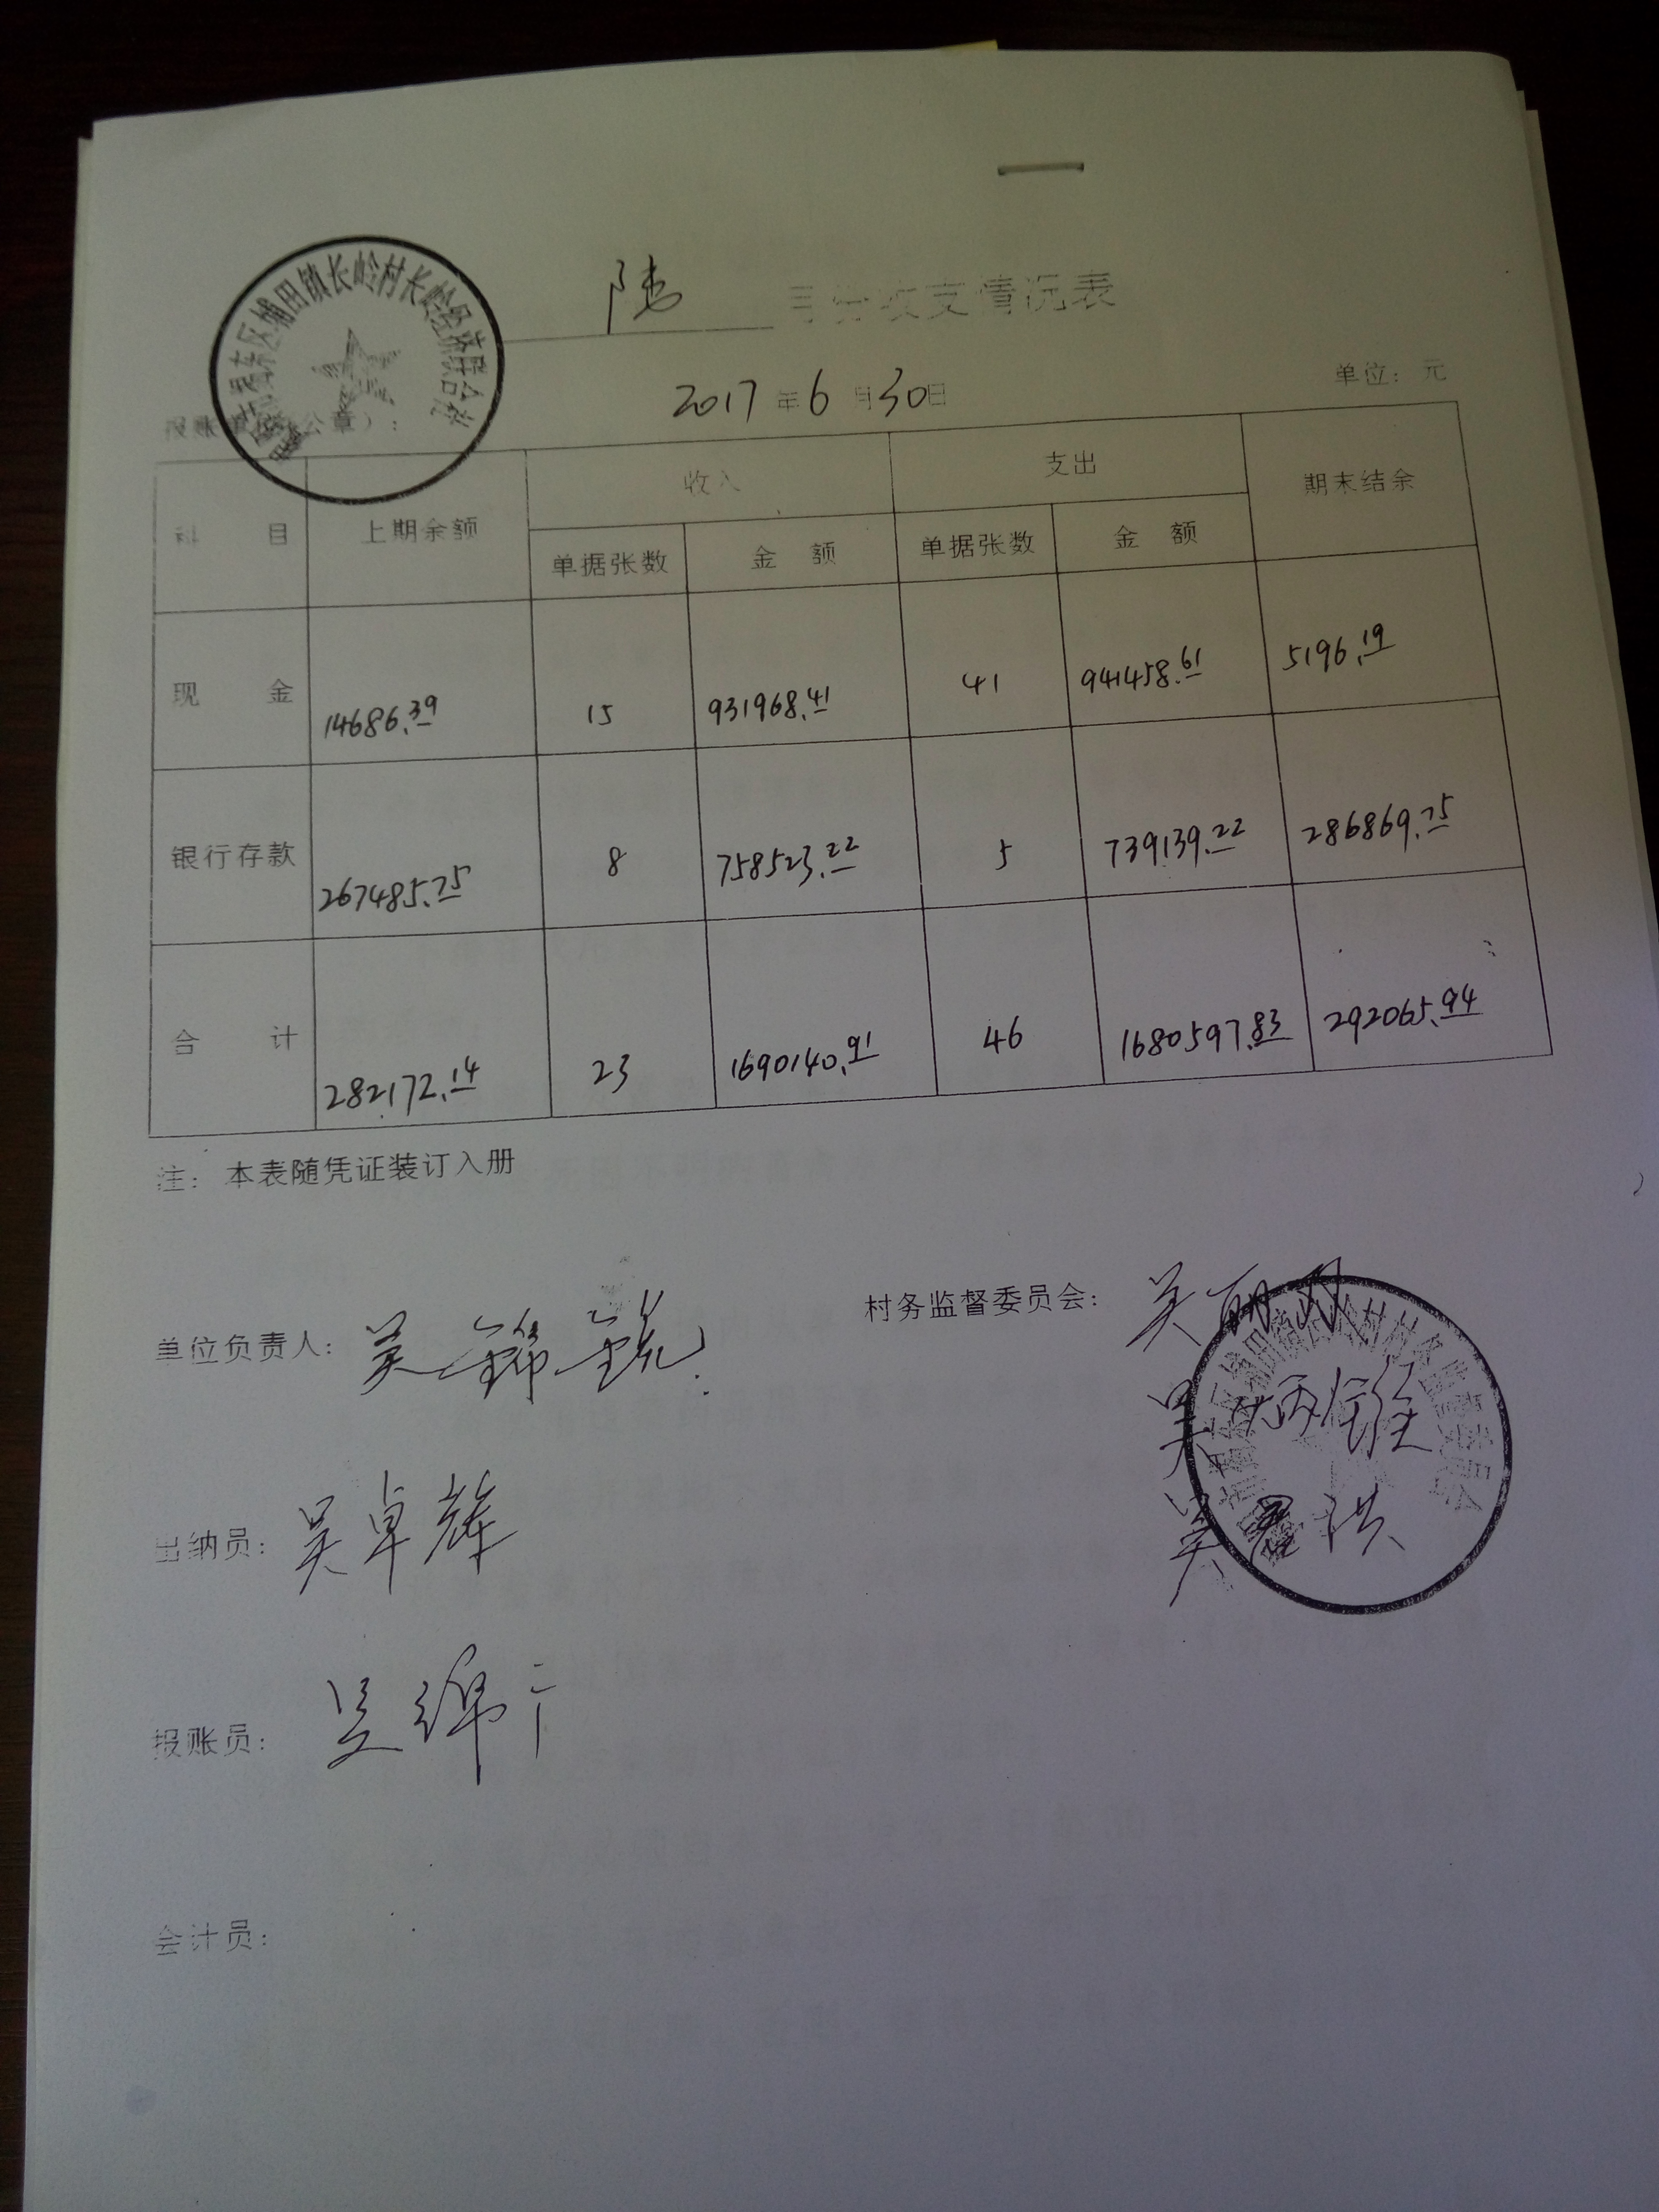 揭东区埔田镇长岭村长岭经济联合社
陆 月份收支情况表
2017年6月30日
单位：元
报账单位（公章）：
科目 上期余额 收入 支出 期末结余
单据张数 金额 单据张数 金额
现金 14686.39 15 931968.41 41 941458.61 5196.19
银行存款 267485.75 8 758523.22 5 739139.22 286869.75
合计 282172.14 23 1690140.91 46 1680597.83 292065.94
注：本表随凭证装订入册
单位负责人：吴锦锐
村务监督委员会：吴丽
吴炳
吴 洪
村村务监督委员会
出纳员：吴卓辉
报账员：吴绵
会计员：